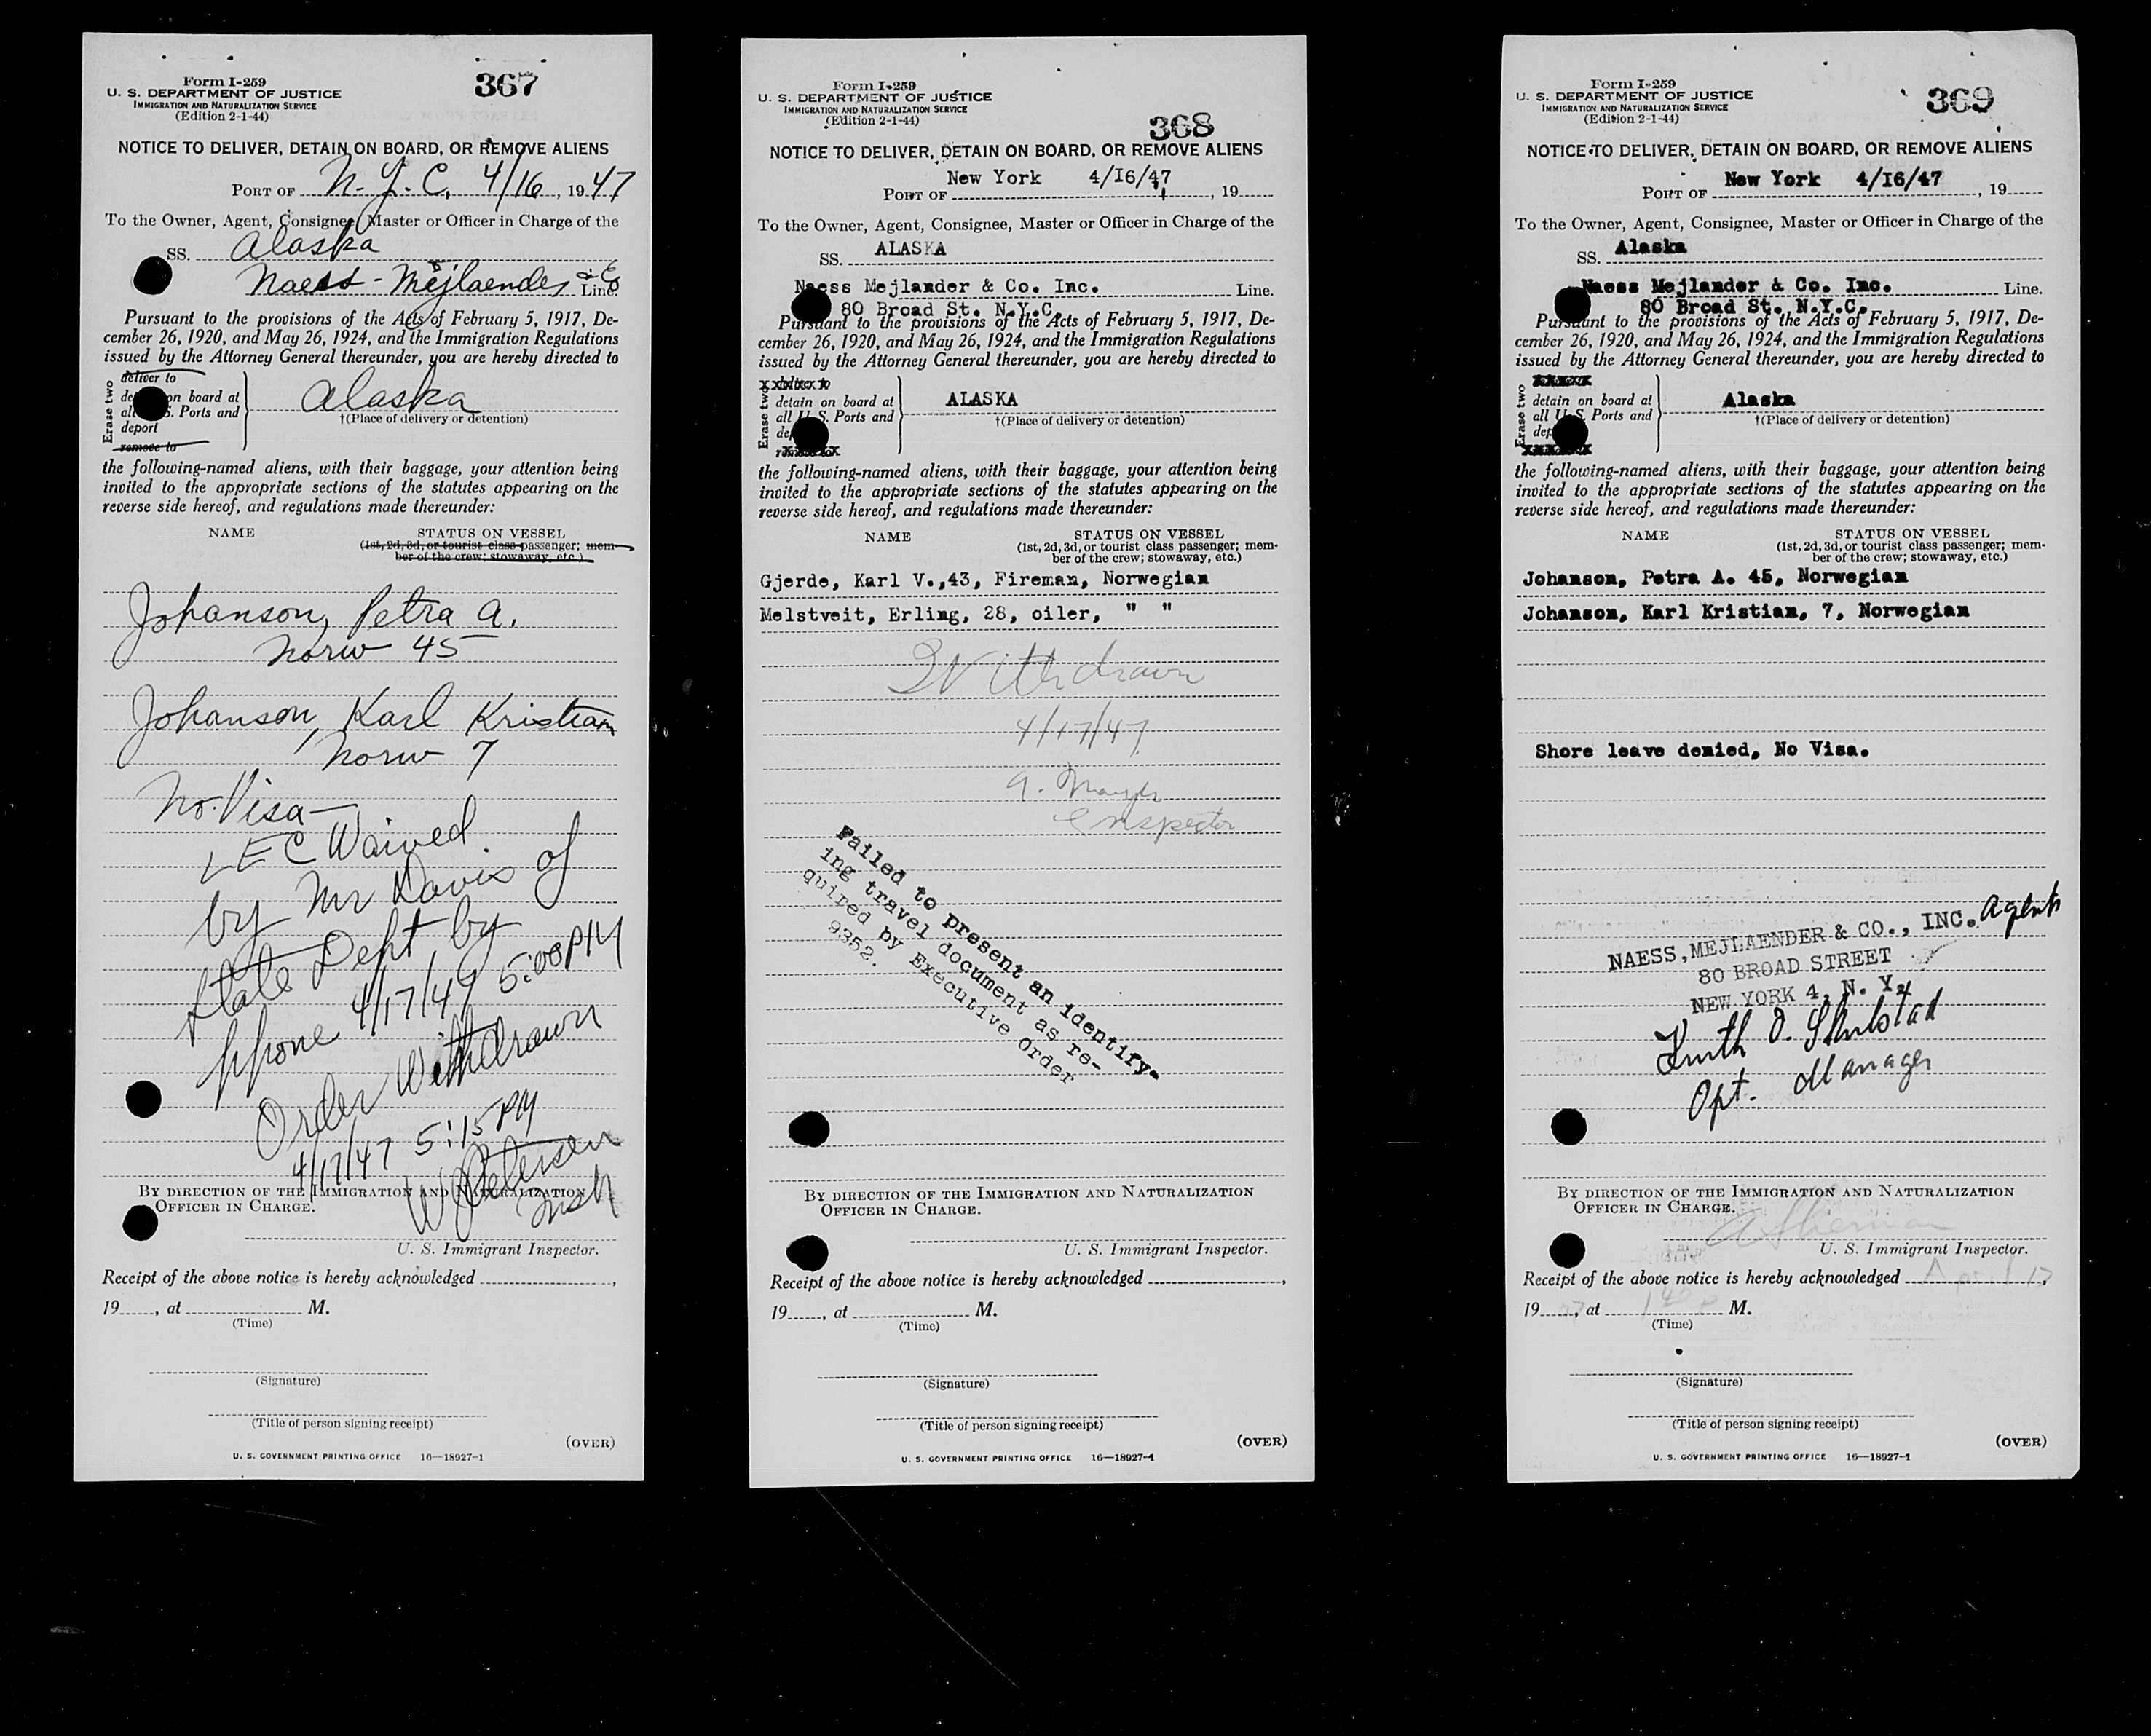 Form I-259
U. S. DEPARTMENT OF JUSTICE
IMMIGRATION AND NATURALIZATION SERVICE
(Edition 2-1-44)
367
NOTICE TO DELIVER, DETAIN ON BOARD, OR REMOVE ALIENS
PORT OF N.Y.C. 4/16, 1947
To the Owner, Agent, Consignee, Master or Officer in Charge of the
SS. Alaska
Naess-Mejlaender & Co Line.
Pursuant to the provisions of the Acts of February 5, 1917, De-
cember 26, 1920, and May 26, 1924, and the Immigration Regulations
issued by the Attorney General thereunder, you are hereby directed to
Erase two
deliver to
detain on board at
all U. S. Ports and
deport
remove to
Alaska
†(Place of delivery or detention)
the following-named aliens, with their baggage, your attention being
invited to the appropriate sections of the statutes appearing on the
reverse side hereof, and regulations made thereunder:
NAME STATUS ON VESSEL
(1st, 2d, 3d, or tourist class passenger; mem-
ber of the crew; stowaway, etc.)
Johanson, Petra A.
Norw 45
Johanson, Karl Kristian
Norw 7
No Visa—
EC Waived
by Mr Davis of
State Dept by
phone 4/17/47 5:00PM
Order Withdrawn
4/17/47 5:15 PM
W Petersen
Insp
BY DIRECTION OF THE IMMIGRATION AND NATURALIZATION
OFFICER IN CHARGE.
U. S. Immigrant Inspector.
Receipt of the above notice is hereby acknowledged ,
19 , at M.
(Time)
(Signature)
(Title of person signing receipt)
(OVER)
U. S. GOVERNMENT PRINTING OFFICE 16—18927-1
Form I-259
U. S. DEPARTMENT OF JUSTICE
IMMIGRATION AND NATURALIZATION SERVICE
(Edition 2-1-44)
368
NOTICE TO DELIVER, DETAIN ON BOARD, OR REMOVE ALIENS
New York 4/I6/47
PORT OF , 19
To the Owner, Agent, Consignee, Master or Officer in Charge of the
SS. ALASKA
Naess Mejlander & Co. Inc. Line.
80 Broad St. N.Y.C.
Pursuant to the provisions of the Acts of February 5, 1917, De-
cember 26, 1920, and May 26, 1924, and the Immigration Regulations
issued by the Attorney General thereunder, you are hereby directed to
Erase two
deliver to
detain on board at
all U. S. Ports and
deport
remove to
ALASKA
†(Place of delivery or detention)
the following-named aliens, with their baggage, your attention being
invited to the appropriate sections of the statutes appearing on the
reverse side hereof, and regulations made thereunder:
NAME STATUS ON VESSEL
(1st, 2d, 3d, or tourist class passenger; mem-
ber of the crew; stowaway, etc.)
Gjerde, Karl V.,43, Fireman, Norwegian
Melstveit, Erling, 28, oiler, " "
Withdrawn
4/17/47
Inspector
Failed to present an identify-
ing travel document as re-
quired by Executive Order
9352.
BY DIRECTION OF THE IMMIGRATION AND NATURALIZATION
OFFICER IN CHARGE.
U. S. Immigrant Inspector.
Receipt of the above notice is hereby acknowledged ,
19 , at M.
(Time)
(Signature)
(Title of person signing receipt)
(OVER)
U. S. GOVERNMENT PRINTING OFFICE 16—18927-1
Form I-259
U. S. DEPARTMENT OF JUSTICE
IMMIGRATION AND NATURALIZATION SERVICE
(Edition 2-1-44)
369
NOTICE TO DELIVER, DETAIN ON BOARD, OR REMOVE ALIENS
New York 4/I6/47
PORT OF , 19
To the Owner, Agent, Consignee, Master or Officer in Charge of the
SS. Alaska
Naess Mejlander & Co. Inc. Line.
80 Broad St. N.Y.C.
Pursuant to the provisions of the Acts of February 5, 1917, De-
cember 26, 1920, and May 26, 1924, and the Immigration Regulations
issued by the Attorney General thereunder, you are hereby directed to
Erase two
detain on board at
all U. S. Ports and
deport
Alaska
†(Place of delivery or detention)
the following-named aliens, with their baggage, your attention being
invited to the appropriate sections of the statutes appearing on the
reverse side hereof, and regulations made thereunder:
NAME STATUS ON VESSEL
(1st, 2d, 3d, or tourist class passenger; mem-
ber of the crew; stowaway, etc.)
Johanson, Petra A. 45, Norwegian
Johanson, Karl Kristian, 7, Norwegian
Shore leave denied, No Visa.
NAESS, MEJLAENDER & CO., INC. Agents
80 BROAD STREET
NEW YORK 4, N. Y.
Opt. Manager
BY DIRECTION OF THE IMMIGRATION AND NATURALIZATION
OFFICER IN CHARGE.
A Sherman
U. S. Immigrant Inspector.
Receipt of the above notice is hereby acknowledged April 17,
19 47, at 1 40 P M.
(Time)
(Signature)
(Title of person signing receipt)
(OVER)
U. S. GOVERNMENT PRINTING OFFICE 16—18927-1